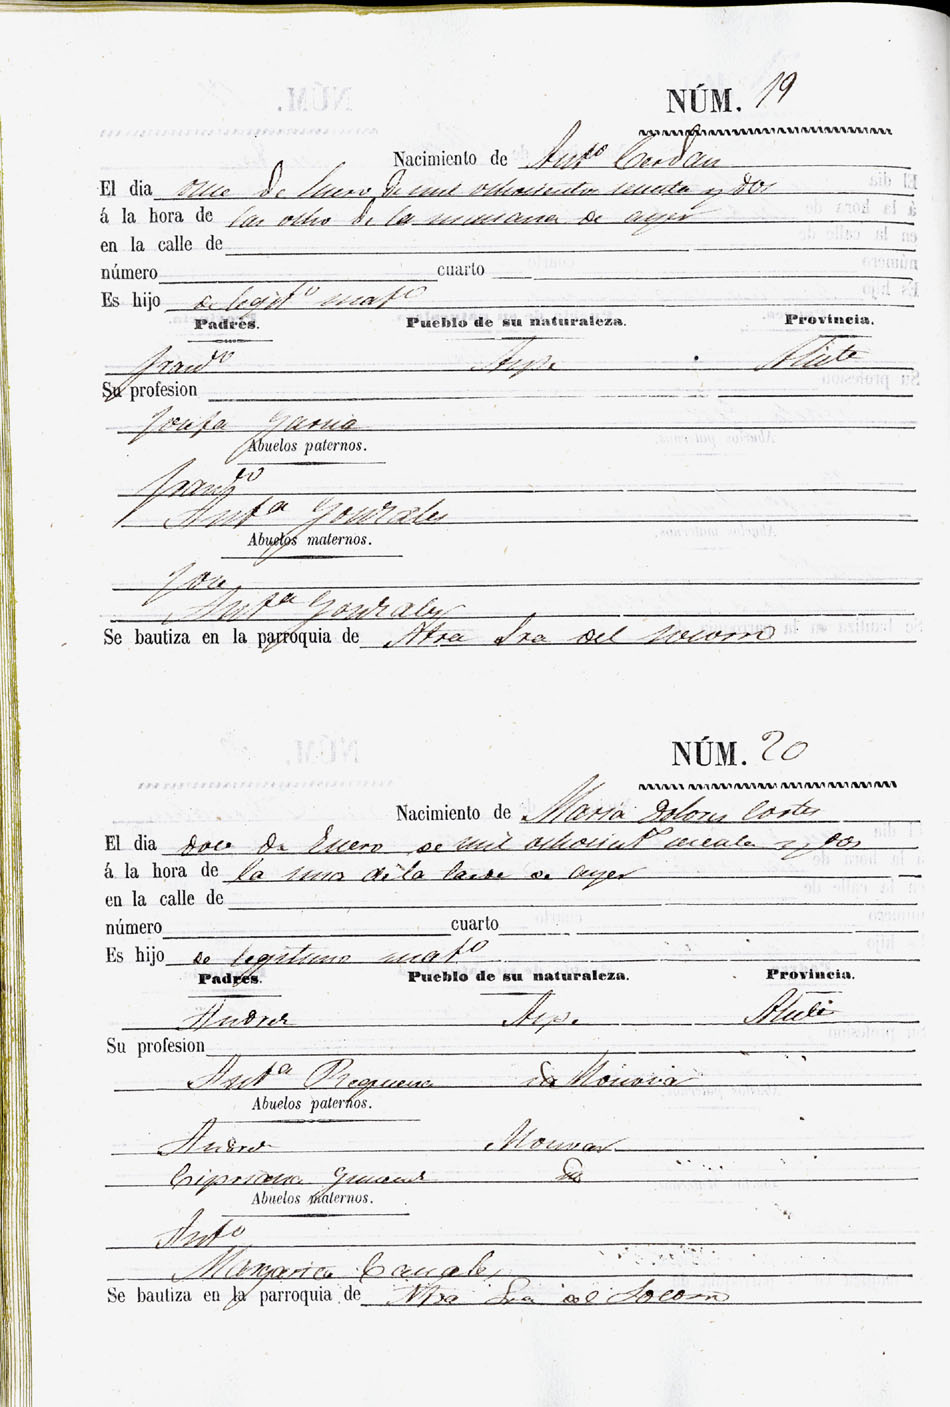 NÚM. 19
Nacimiento de Antº Cerdan
El dia once de Enero de mil ochocientos sesenta y dos
á la hora de las ocho de la mañana de ayer
en la calle de
número cuarto
Es hijo de legitº matº
Padres. Pueblo de su naturaleza. Provincia.
Franco Aspe Alicte
Su profesion
Josefa Garcia
Abuelos paternos.
Franco
Antª Gonzales
Abuelos maternos.
Jose
Antª Gonzales
Se bautiza en la parroquia de Ntra Sra del Socorro
NÚM. 20
Nacimiento de Maria Dolores Cortes
El dia doce de Enero de mil ochocient sesenta y dos
á la hora de la una de la tarde de ayer
en la calle de
número cuarto
Es hijo de legitimo matº
Padres. Pueblo de su naturaleza. Provincia.
Andres Aspe
Su profesion
Antª Requena
Abuelos paternos.
Andres Monovar
Cipriana
Abuelos maternos.
Antº
Margarita
Se bautiza en la parroquia de Ntra Sra del Socorro